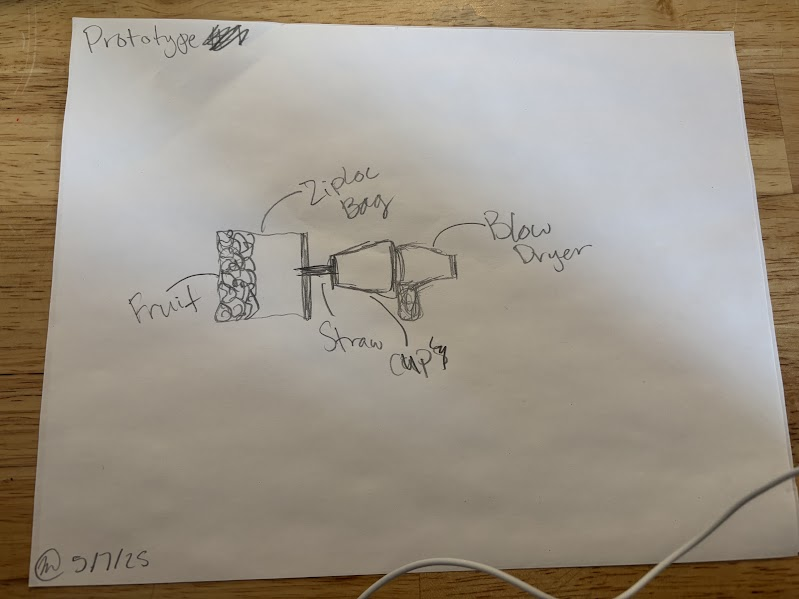 Prototype
Ziploc
Bag
Blow
Dryer
Fruit
Straw
cup
5/7/25